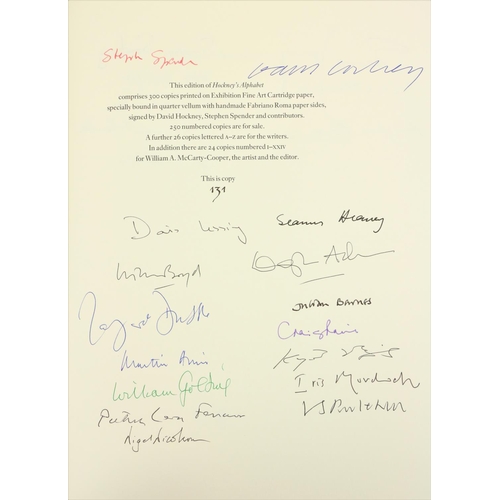 Stephen Spender
David Hockney
This edition of Hockney's Alphabet
comprises 300 copies printed on Exhibition Fine Art Cartridge paper,
specially bound in quarter vellum with handmade Fabriano Roma paper sides,
signed by David Hockney, Stephen Spender and contributors.
250 numbered copies are for sale.
A further 26 copies lettered A–Z are for the writers.
In addition there are 24 copies numbered I–XXIV
for William A. McCarty-Cooper, the artist and the editor.
This is copy
131
Doris Lessing
Seamus Heaney
William Boyd
Douglas Adams
Margaret Drabble
Julian Barnes
Craig Raine
Martin Amis
William Golding
Iris Murdoch
Patrick Leigh Fermor
VS Pritchett
Nigel Nicolson